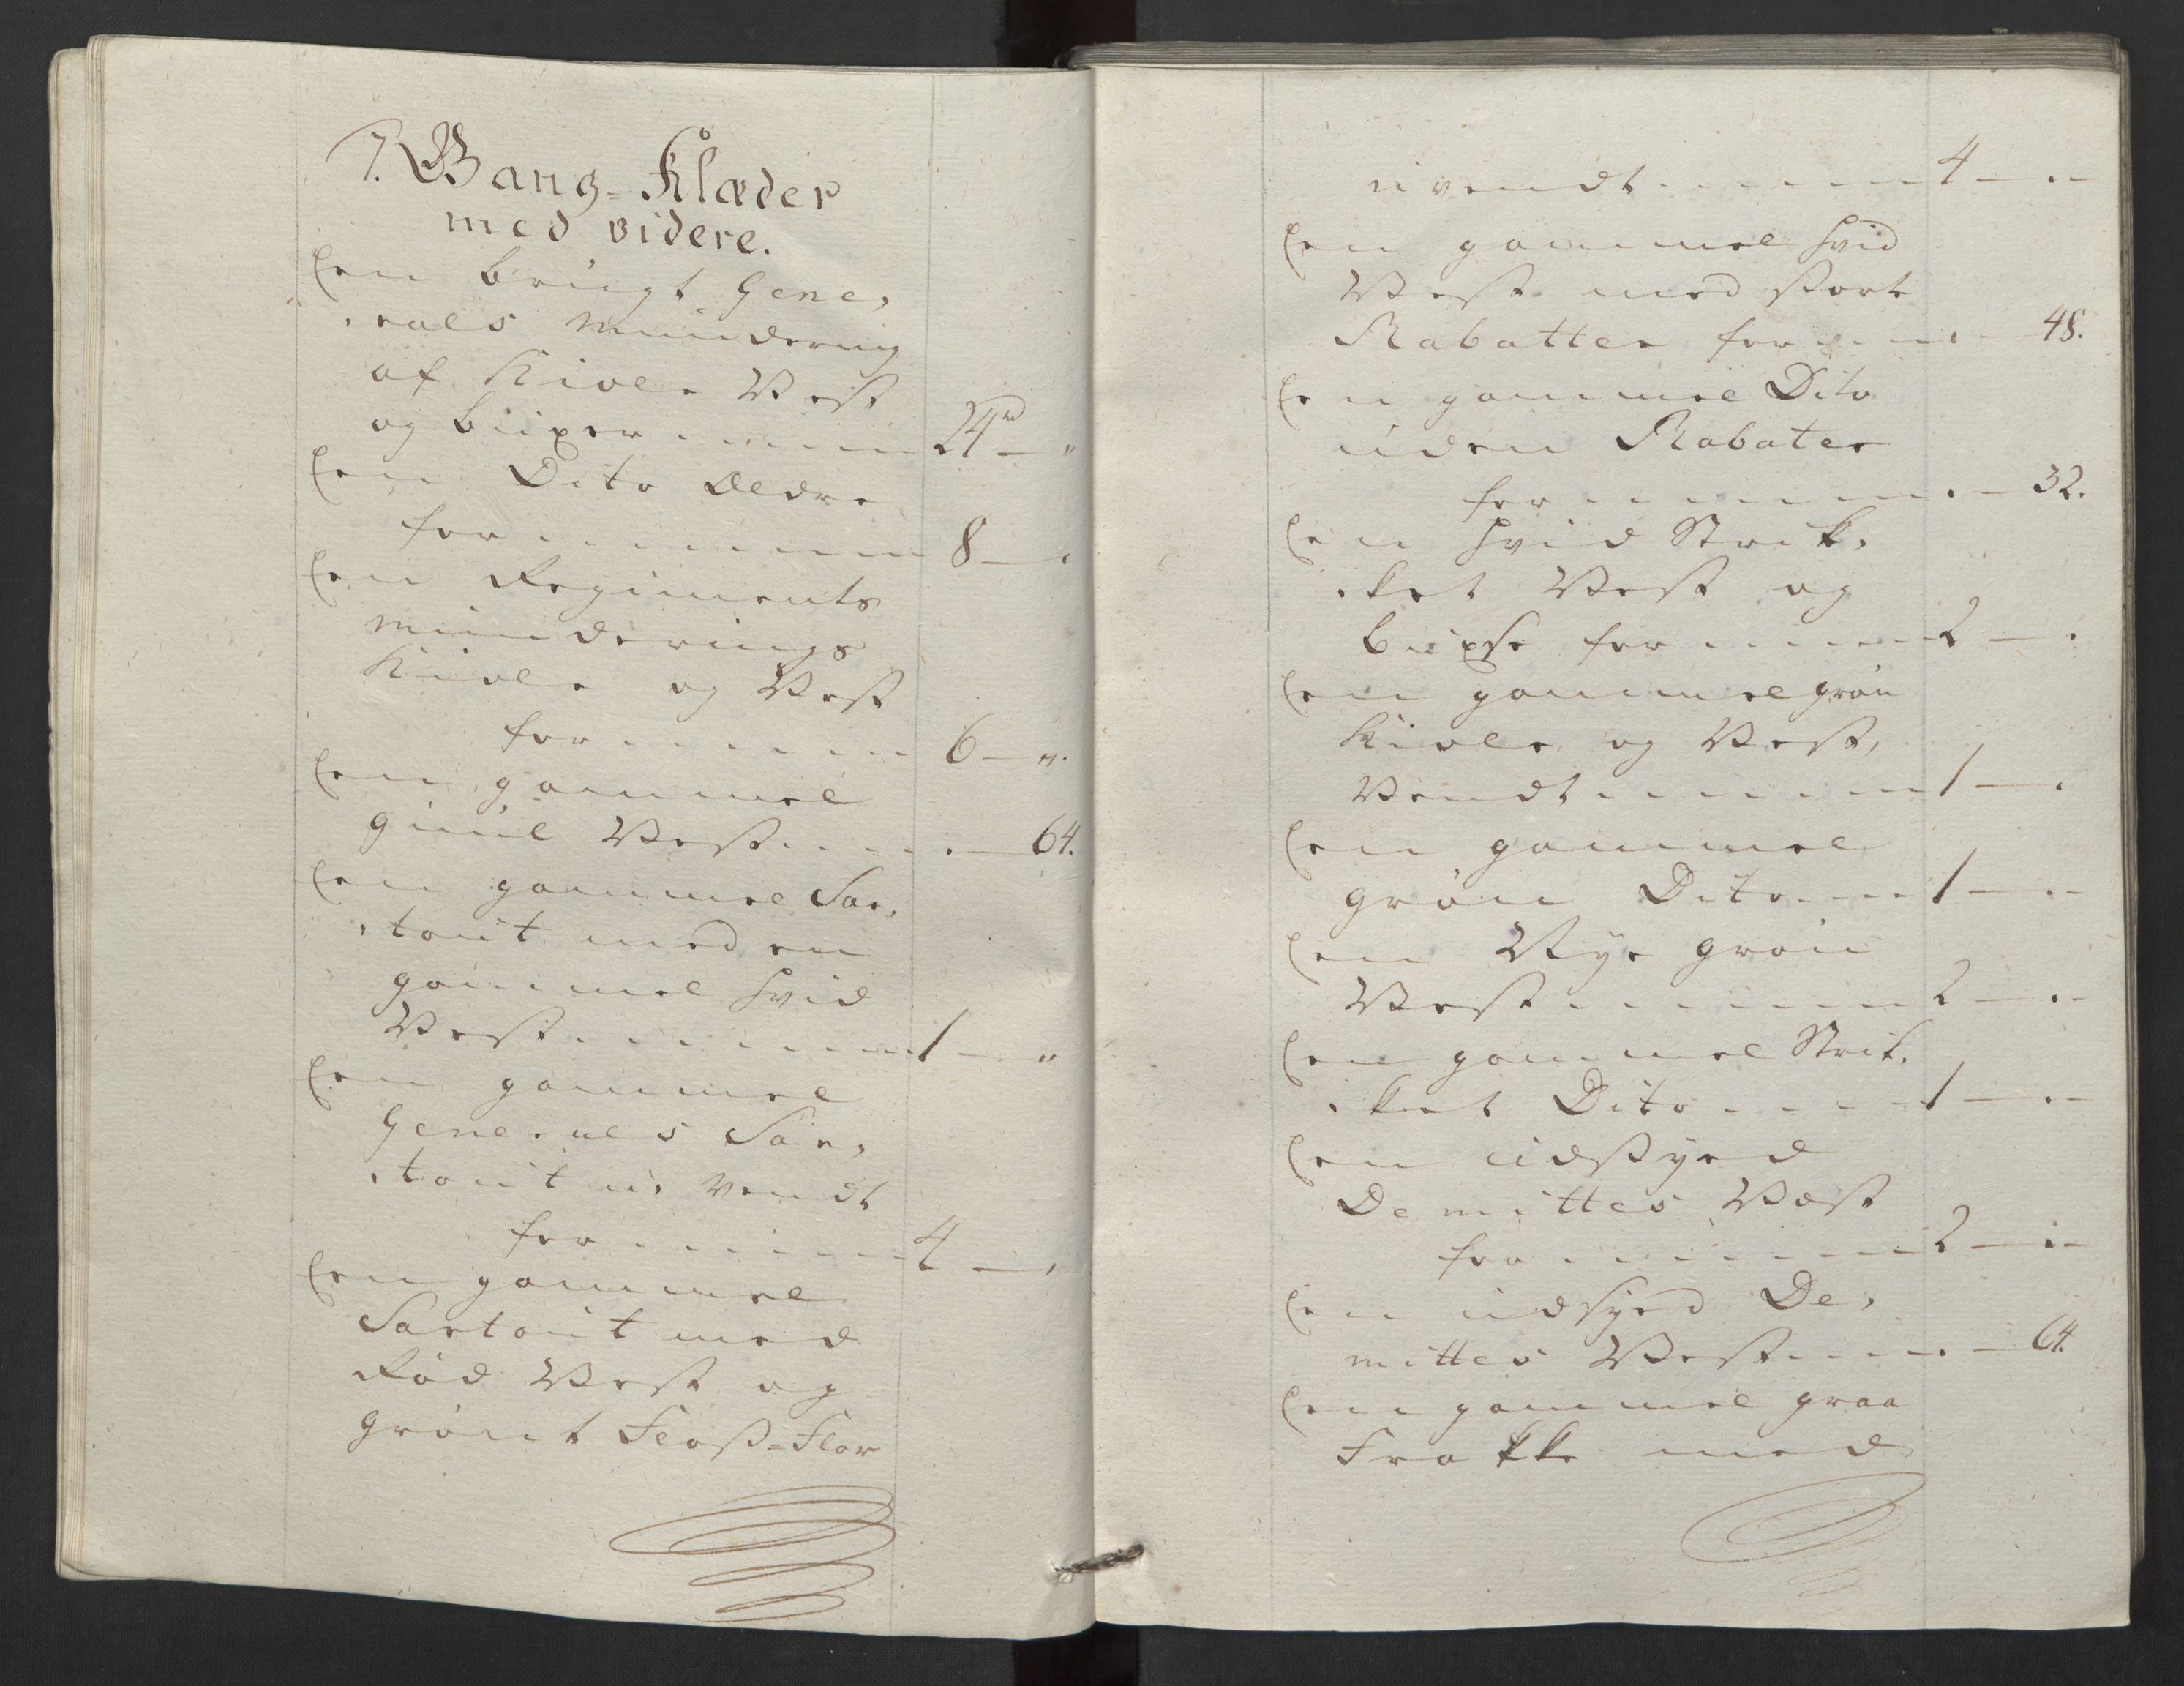 7. Gang-Klæder
med videre.
En brugt Gene,
,rals Mundering
af Kiole Vest
og buxer . . . . 24 rd — "
En Dito Ældre
for . . . . . . 8 — .
En Regiments
Munderings
Kiole og Vest
for . . . . . 6 — ".
En gammel
guul Vest . . . . — 64.
En gammel Sar,
,tout med en
gammel hvid
Vest . . . . . . 1 — "
En gammel
Generals Sar,
,tout u, vendt
for . . . . . 4 — ,
En gammel
Sartout med
Rød Vest og
grønt Floss-Flor
uvendt . . . . . 4 — . —
En gammel hvid
Vest med store
Rabatter for . . . . — 48.
En gammel Dito
uden Rabater
for . . . . . . . — 32.
En hvid Strik,
,ket Vest og
buxse for . . . . 2 — .
En gammel grøn
Kiole og Vest,
Vendt . . . . . . 1 — .
En gammel
grøn Dito . . . 1 — . —
En Nye grøn
Vest . . . . . . 2 — . —
En gammel Strik,
,ket Dito . . . . 1 — . —
En udsyed
Demittes Væst
for . . . . . . 2 — . —
En udsyed De,
mittes Vest . . . . — 64.
En gammel graa
Frakke med